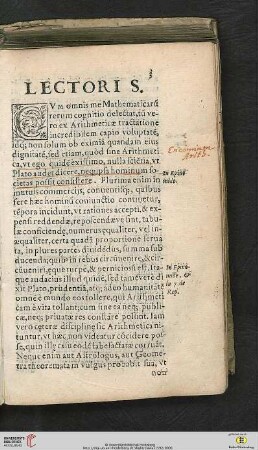 3
LECTORI S.
CVM omnis me Mathematicarũ
rerum cognitio delectat, tũ ve-
ro ex Arithmeticæ tractatione
incredibilem capio voluptatẽ,
idq; non solum ob eximiã quandam eius
dignitatẽ, sed etiam, quòd sine Arithmeti-
ca, vt ego quidẽ existimo, nulla sciẽtia, vt
Plato auder dicere, neq; ipsa hominum so-
cietas possit consistere. Plurima enim in-
In Epino
mide.
sunt commerciis, conuentisq;, quibus
fere hæc hominũ coniunctio continetur,
tẽpora incidunt, vt rationes accepti, & ex-
pensi reddendæ, reposcendæve sint, tabu-
læ conficiendæ, numerus æqualiter, vel in-
æqualiter, certa quadã proportione iteru-
ta, in plures partes diuidẽdus, summa sub-
ducenda: quibus in rebus circũuenire, & cir-
cũueniri, æque turpe, & perniciosũ est. Ita-
que audacius illud quidẽ, sed tamẽ verè di-
In Epino
mide, &
in 7 de
Rep.
xit Plato, prudentiã, atq; adeo humanitatẽ
omnem è mundo eos tollere, qui Arithmeti
cam è vita tollant: cum sine ea neq; public-
æ, neq; priuatæ res constare possint. Iam
vero cęteræ disciplinæ sic Arithmetica ni-
tuntur, vt hæc non videatur cõcidere pos-
se, quin illę cum eodẽ labefactatæ corruãt.
Neque enim aut Astrologus, aut Geome-
tra theoremata in vulgus probabit sua, vt
non